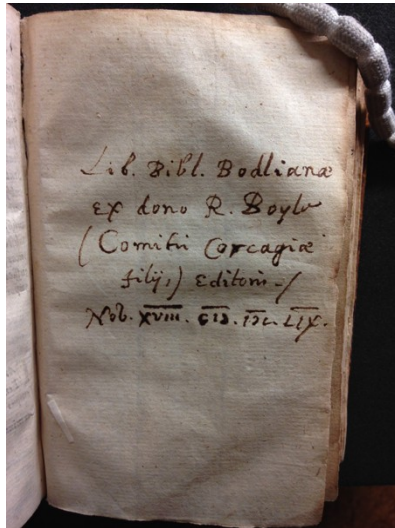 Lib. Bibl. Bodlianæ
ex dono R. Boyle
(Comitis Corcagiæ
filij,) Editoris -/
Nob. XVIII. CIƆ. IƆC. LIX.